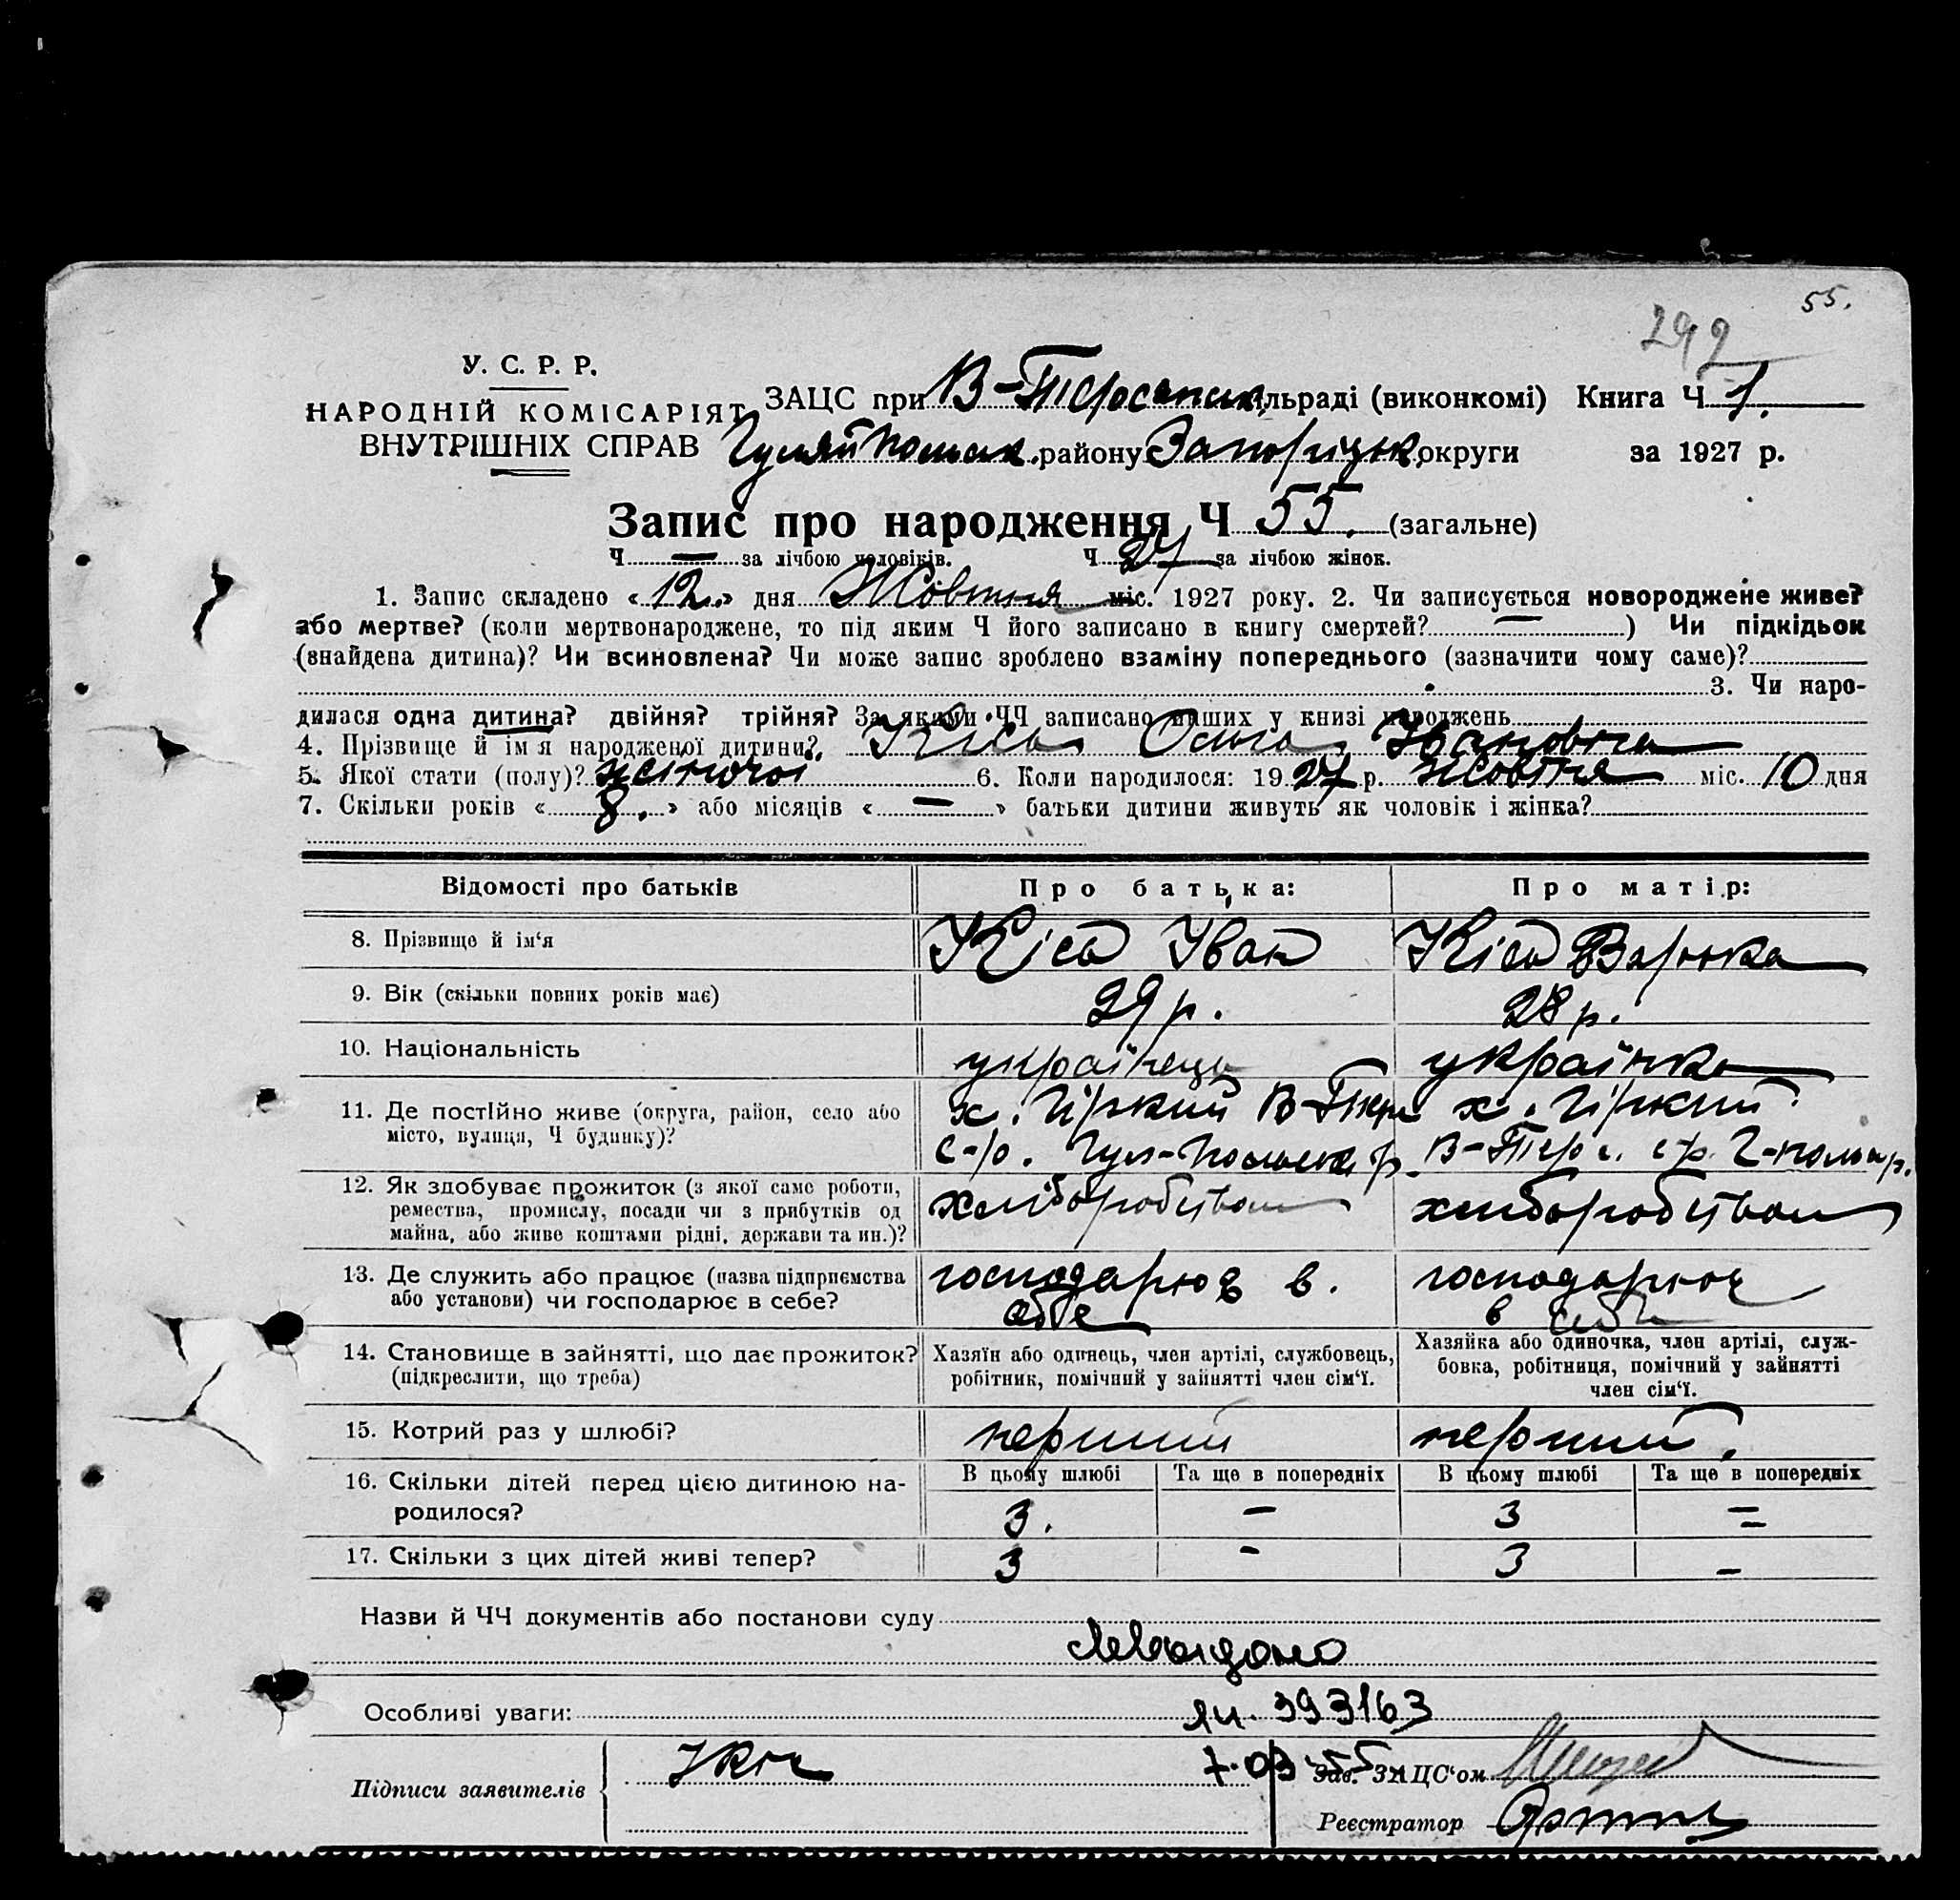 55.
292
У. С. Р. Р.
НАРОДНІЙ КОМІСАРІЯТ
ВНУТРІШНІХ СПРАВ
ЗАЦС при В-Терсанськ. ільраді (виконкомі) Книга Ч 1.
Гуляйпольск. району Запоріцьк. округи за 1927 р.
Запис про народження Ч 55. (загальне)
Ч — за лічбою чоловіків. Ч 27 за лічбою жінок.
1. Запис складено «12.» дня Жовтня міс. 1927 року. 2. Чи записується новороджене живе?
або мертве? (коли мертвонароджене, то під яким Ч його записано в книгу смертей? — ) Чи підкідьок
(знайдена дитина)? Чи всиновлена? Чи може запис зроблено взаміну попереднього (зазначити чому саме)?
3. Чи наро-
дилася одна дитина? двійня? трійня? За якими ЧЧ записано инших у книзі народжень
4. Прізвище й ім'я народженої дитини? Кіса Ольга Івановна
5. Якої стати (полу)? жіночої 6. Коли народилося: 1927 р. жовтня міс. 10 дня
7. Скільки років «8.» або місяців «—» батьки дитини живуть як чоловік і жінка?
Відомості про батьків Про батька: Про матір:
8. Прізвище й ім'я Кіса Іван Кіса Варька
9. Вік (скільки повних років має) 29 р. 28 р.
10. Національність українець українка
11. Де постійно живе (округа, район, село або
місто, вулиця, Ч будинку)?
х. Гіркий В-Терс
с-р. Гул-Польськ р.
х. Гіркий
В-Терс. с/р. Г-поль р.
12. Як здобуває прожиток (з якої саме роботи,
ремества, промислу, посади чи з прибутків од
майна, або живе коштами рідні, держави та ин.)?
хліборобством хліборобством
13. Де служить або працює (назва підприємства
або установи) чи господарює в себе?
господарює в.
себе
господарює
в себе
14. Становище в зайнятті, що дає прожиток?
(підкреслити, що треба)
Хазяїн або одинець, член артілі, службовець,
робітник, помічний у зайнятті член сім'ї.
Хазяйка або одиночка, член артілі, служ-
бовка, робітниця, помічний у зайнятті
член сім'ї.
15. Котрий раз у шлюбі? перший перший.
16. Скільки дітей перед цією дитиною на-
родилося?
В цьому шлюбі Та ще в попередніх В цьому шлюбі Та ще в попередніх
3. — 3 =
17. Скільки з цих дітей живі тепер? 3 - 3 —
Назви й ЧЧ документів або постанови суду
Особливі уваги: 393163
7.03.55
Підписи заявителів
Зав. ЗАЦС'ом
Реєстратор